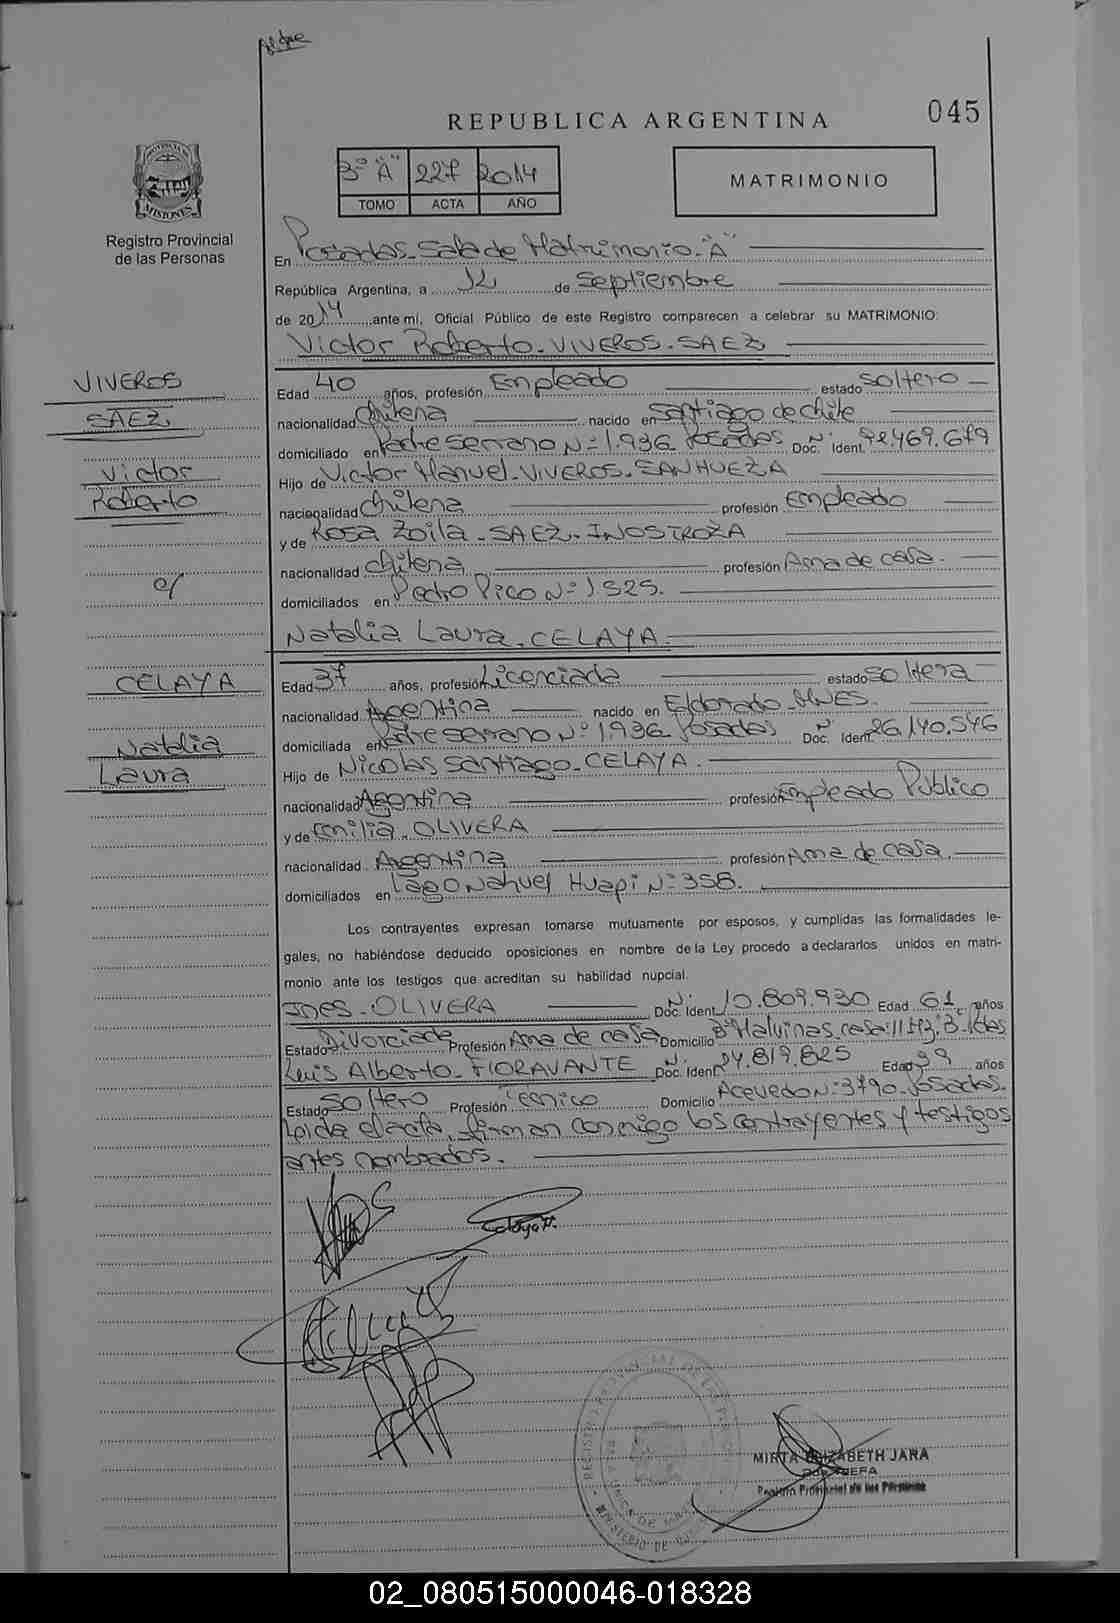 REPUBLICA ARGENTINA
045
PROVINCIA DE
MISIONES
Registro Provincial
de las Personas
3º "A" 227 2014
TOMO ACTA AÑO
MATRIMONIO
En Posadas-Sala de Matrimonio-"A"
República Argentina, a 12 de Septiembre
de 2014 ante mí, Oficial Público de este Registro comparecen a celebrar su MATRIMONIO:
Victor Roberto-VIVEROS-SAEZ
VIVEROS
SAEZ
Victor
Roberto
c/
CELAYA
Natalia
Laura
Edad 40 años, profesión Empleado estado Soltero
nacionalidad Chilena nacido en Santiago de Chile
domiciliado en Padre Serrano Nº 1.936 Posadas Doc. Ident. Nº 92.469.679
Hijo de Victor Manuel-VIVEROS-SANHUEZA
nacionalidad Chilena profesión Empleado
y de Rosa Zoila-SAEZ-INOSTROZA
nacionalidad Chilena profesión Ama de casa.
domiciliados en Pedro Pico Nº 1.525.
Natalia Laura-CELAYA.
Edad 37 años, profesión Licenciada estado Soltera
nacionalidad Argentina nacido en Eldorado-MNES.
domiciliada en Padre Serrano Nº 1.936 Posadas Doc. Ident. Nº 26.140.546
Hijo de Nicolas Santiago-CELAYA.
nacionalidad Agentina profesión Empleado Público
y de Emilia-OLIVERA
nacionalidad Argentina profesión Ama de casa.
domiciliados en Lago Nahuel Huapi Nº 358.
Los contrayentes expresan tomarse mutuamente por esposos, y cumplidas las formalidades le-
gales, no habiéndose deducido oposiciones en nombre de la Ley procedo a declararlos unidos en matri-
monio ante los testigos que acreditan su habilidad nupcial.
INES-OLIVERA Doc. Ident. Nº 10.809.930 Edad 61 años
Estado Divorciada Profesión Ama de casa Domicilio Bº Malvinas casa:11
Luis Alberto-FIORAVANTE Doc. Ident. Nº 24.819.825 Edad 39 años
Estado Soltero Profesión Técnico Domicilio Acevedo Nº 3790-Posadas.
Leida el acta, firman conmigo los contrayentes y testigos
antes nombrados.
MIRTA ELIZABETH JARA
Registro Provincial de las Personas
02_080515000046-018328